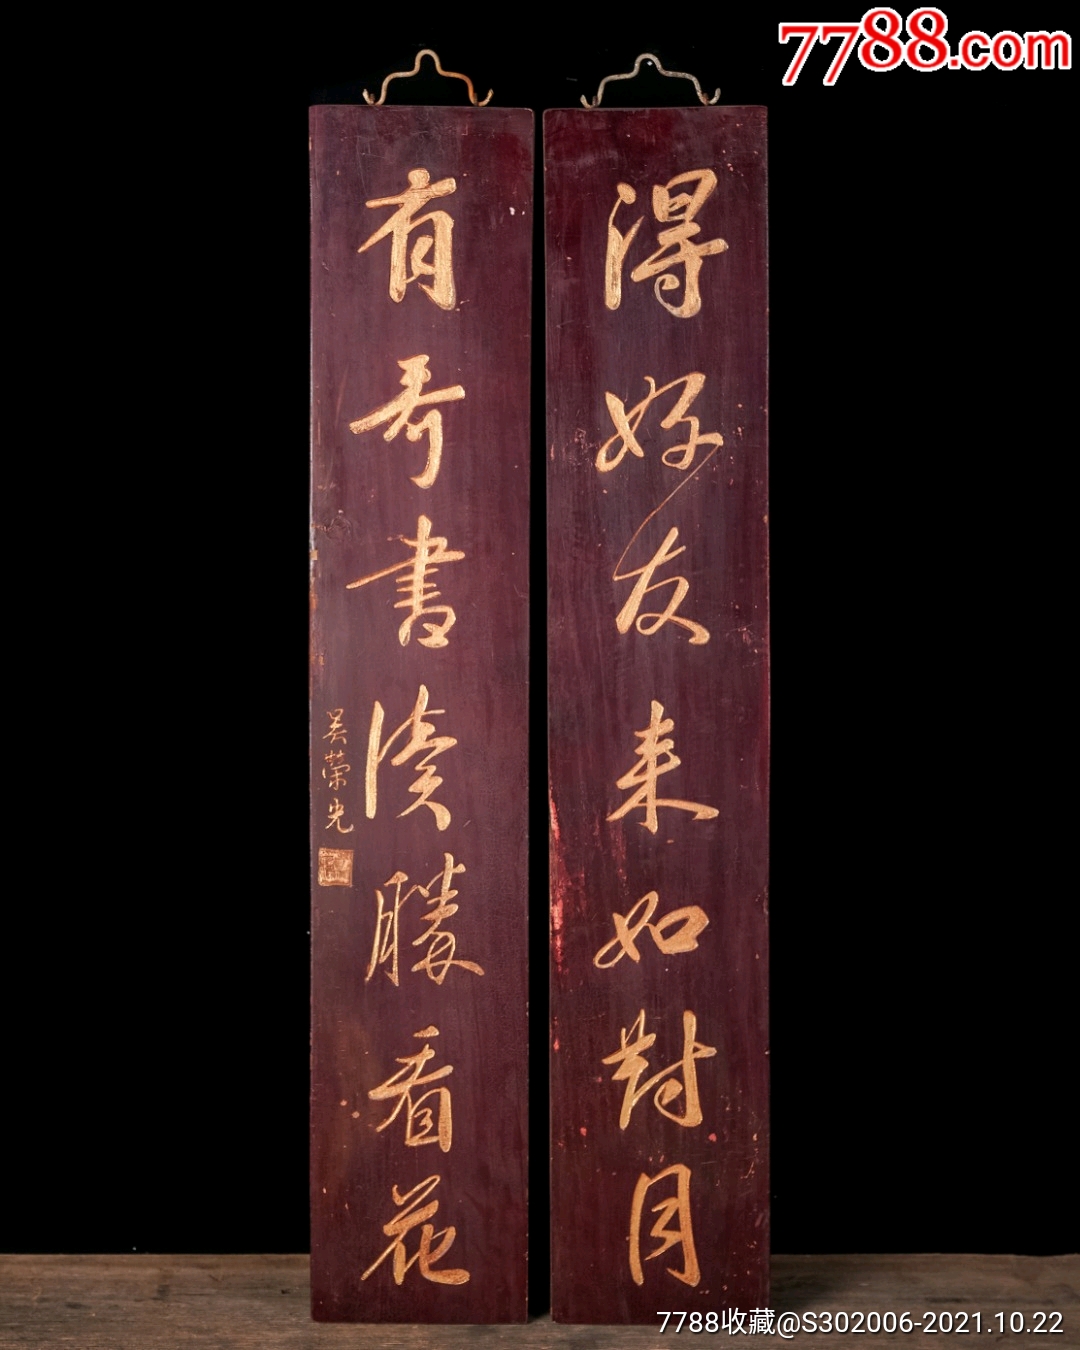 7788.com
得好友来如對月
有奇書讀勝看花
吳榮光
7788收藏@S302006-2021.10.22